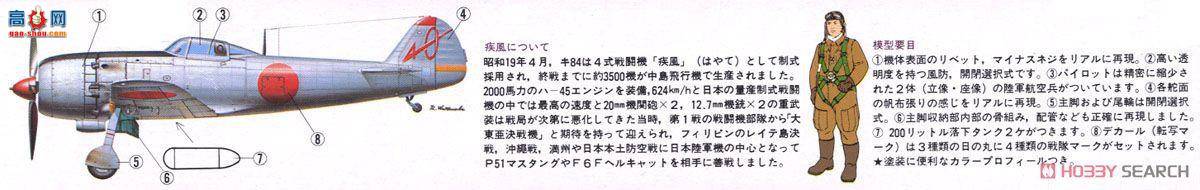 高高网
gao-shou.com
①
②
③
④
⑤
⑥
⑦
⑧
疾風について
昭和19年4月,キ84は4式戦闘機「疾風」(はやて)として制式
採用され,終戦までに約3500機が中島飛行機で生産されました。
2000馬力のハ-45エンジンを装備,624km/hと日本の量産制式戦闘
機の中では最高の速度と20mm機関砲×2,12.7mm機銃×2の重武
装は戦局が次第に悪化してきた当時,第1戦の戦闘機部隊から「大
東亜決戦機」と期待を持って迎えられ,フィリピンのレイテ島決
戦,沖縄戦,満州や日本本土防空戦に日本陸軍機の中心となって
P51マスタングやF6Fヘルキャットを相手に善戦しました。
模型要目
①機体表面のリベット,マイナスネジをリアルに再現。②高い透
明度を持つ風防,開閉選択式です。③パイロットは精密に縮少さ
れた2体(立像・座像)の陸軍航空兵がついています。④各舵面
の帆布張りの感じをリアルに再現。⑤主脚および尾輪は開閉選択
式。⑥主脚収納部内部の骨組み,配管なども正確に再現しました。
⑦ 200リットル落下タンク2ケがつきます。⑧デカール(転写マー
ク)は3種類の日の丸に4種類の戦隊マークがセットされます。
★塗装に便利なカラープロフィールつき。
HOBBY SEARCH